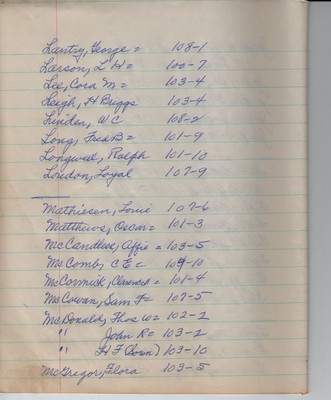 Lantry, George = 108-1
Larson, L H = 100-7
Lee, Cora M = 103-4
Leigh, H Briggs 103-4
Linder, W C 108-2
Long, Fred B = 101-9
Longwell, Ralph 101-10
Loudon, Loyal 107-9
Mathiesen, Louie 107-6
Matthews, Oscar = 101-3
McCandless, Affie = 103-5
McComb, C E = 104-10
McCormick, Clarence = 101-4
McCowan, Sam F = 107-5
McDonald, Thos W = 102-2
" John R = 103-2
" H F 103-10
McGregor, Flora 103-5